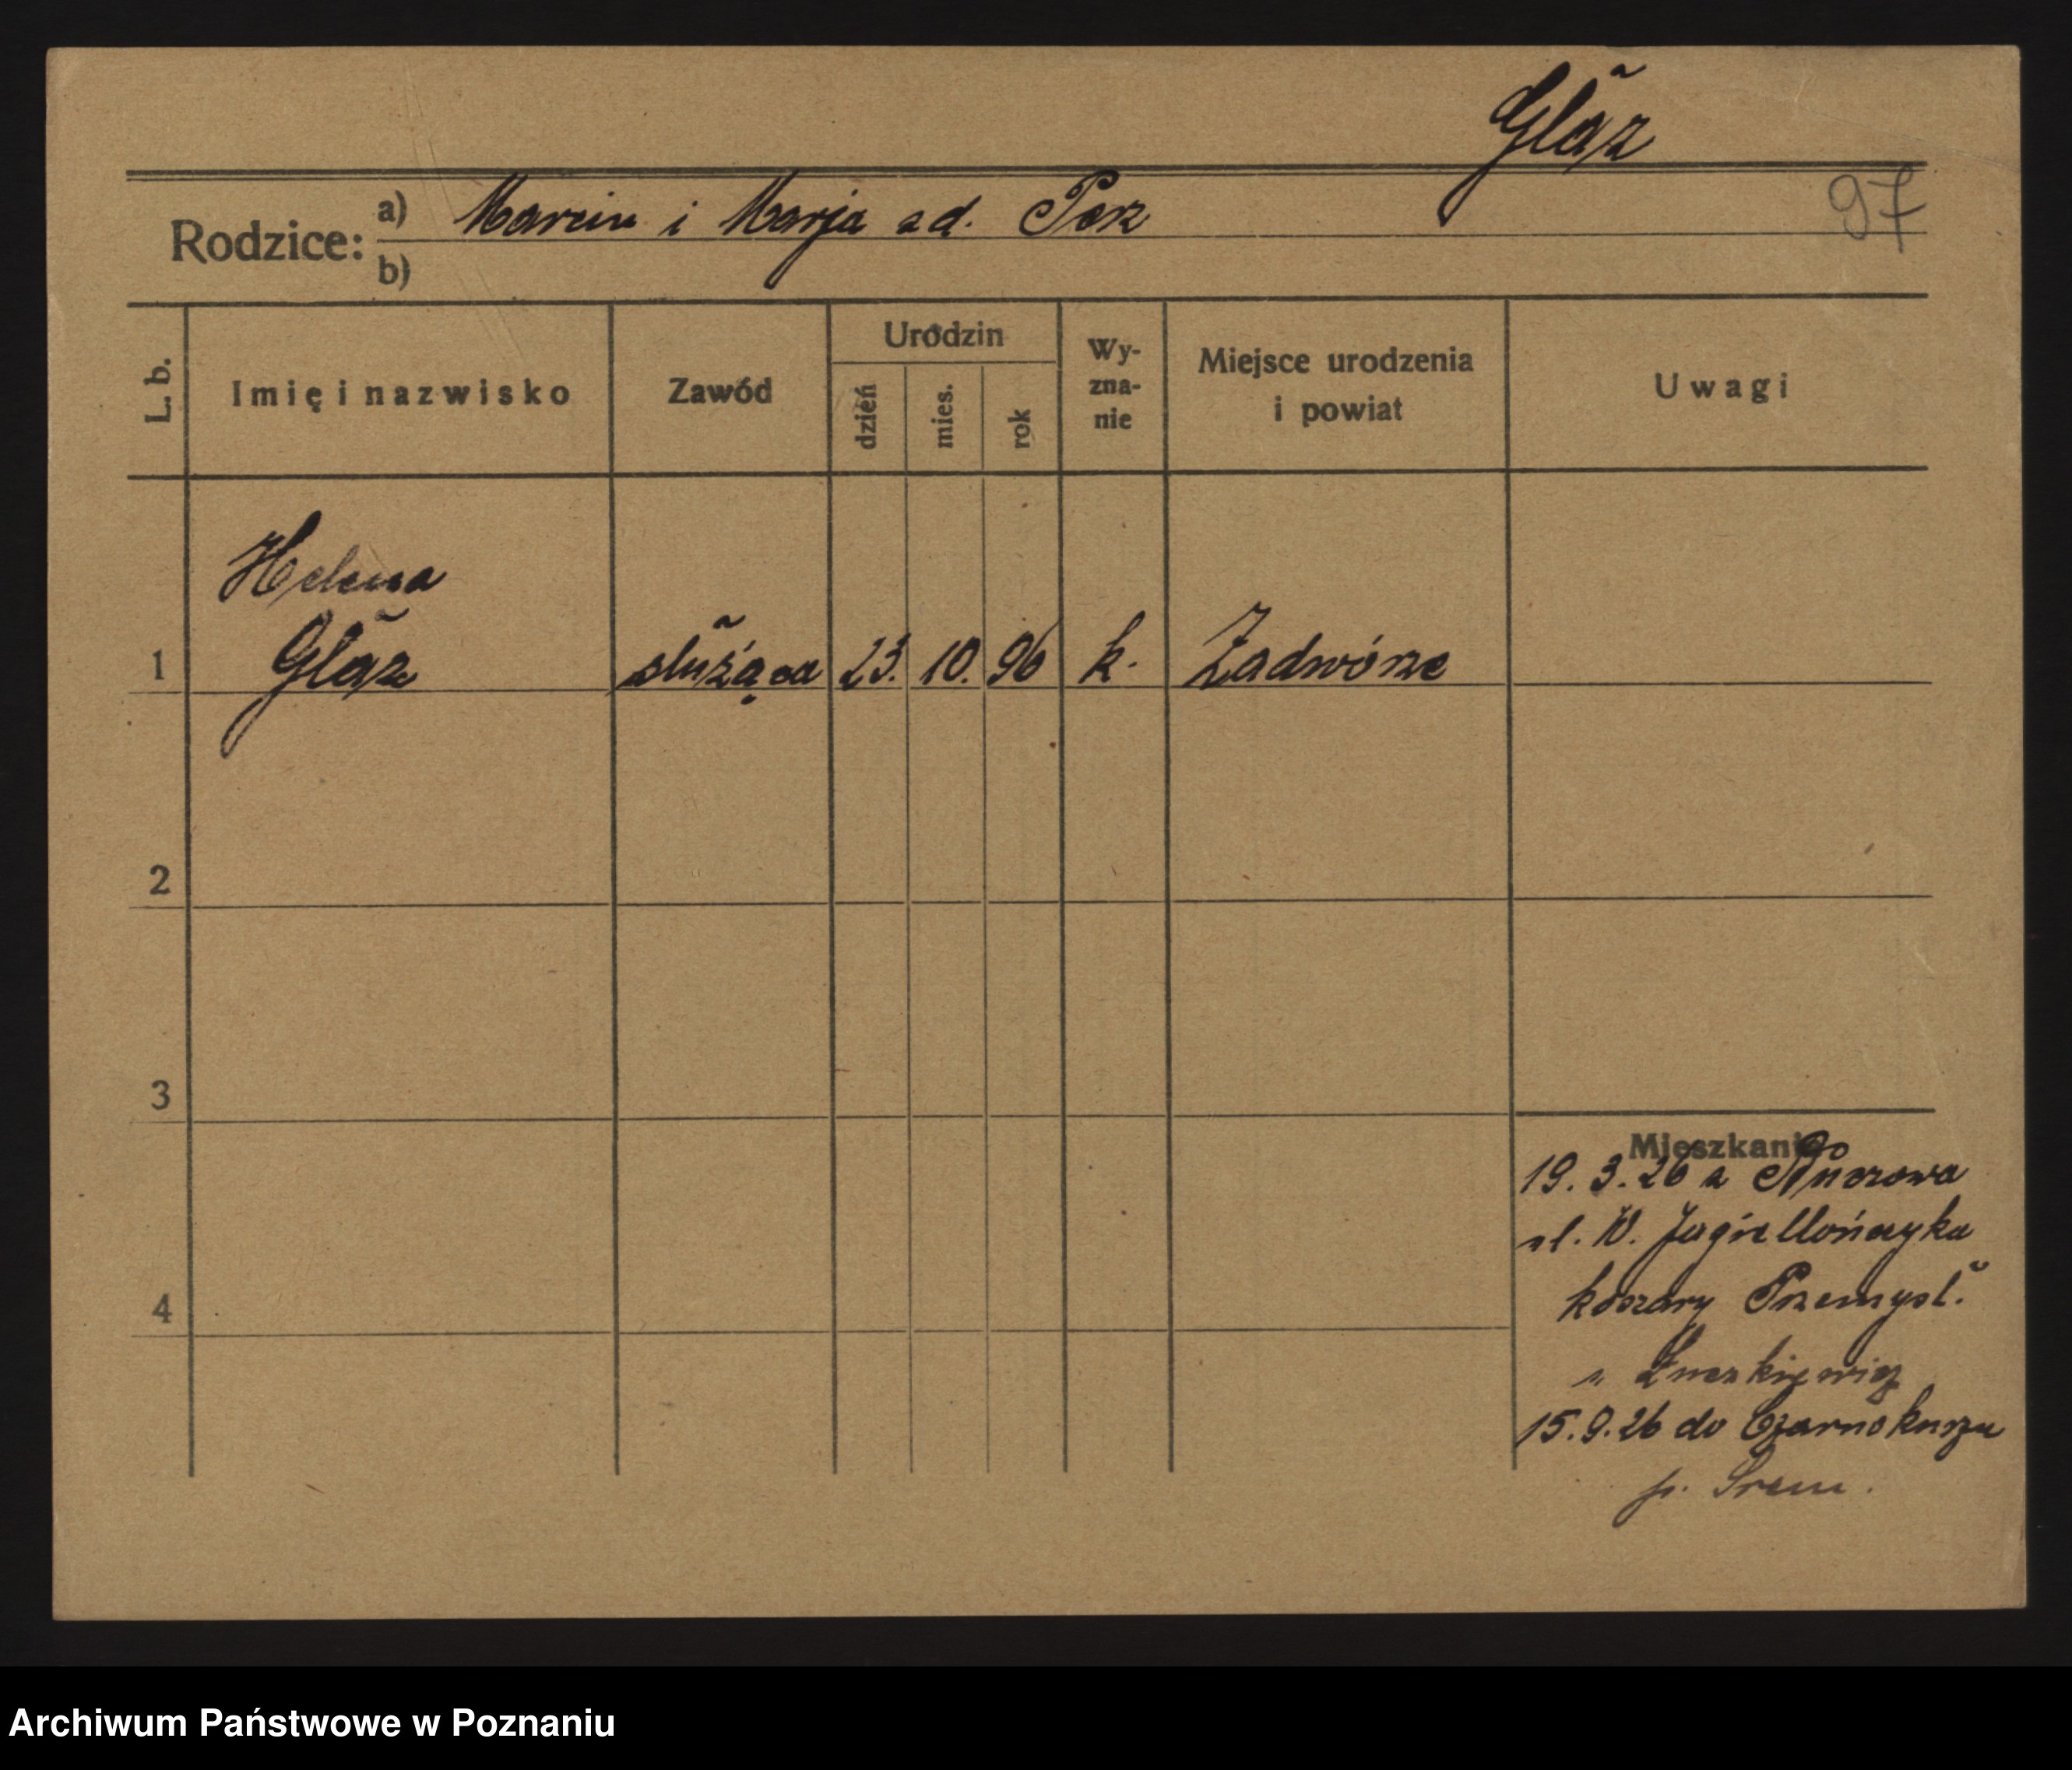 Głaz
97
Rodzice: a) Marcin i Marja zd. Perz
b)
L. b. Imię i nazwisko Zawód Urodzin dzień mies. rok Wy-zna-nie Miejsce urodzenia i powiat Uwagi
Helena
1 Głaz służąca 23. 10. 96 k. Zadwórze
2
3
4
Mieszkanie
19. 3. 26 z
ul. W. Jagiellończyka
koszary Przemysł.
15. 9. 26 do
p. Śrem.
Archiwum Państwowe w Poznaniu